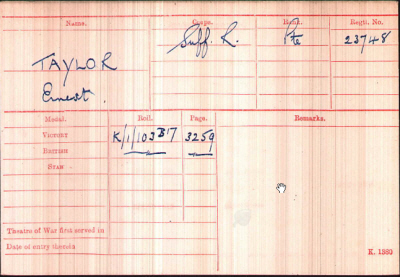 Name. Corps. Rank. Regtl. No.
TAYLOR Suff. R. Pte 23748
Ernest.
Medal. Roll. Page. Remarks.
Victory K/1/103B17 3259
British
Star
Theatre of War first served in
Date of entry therein
K. 1380